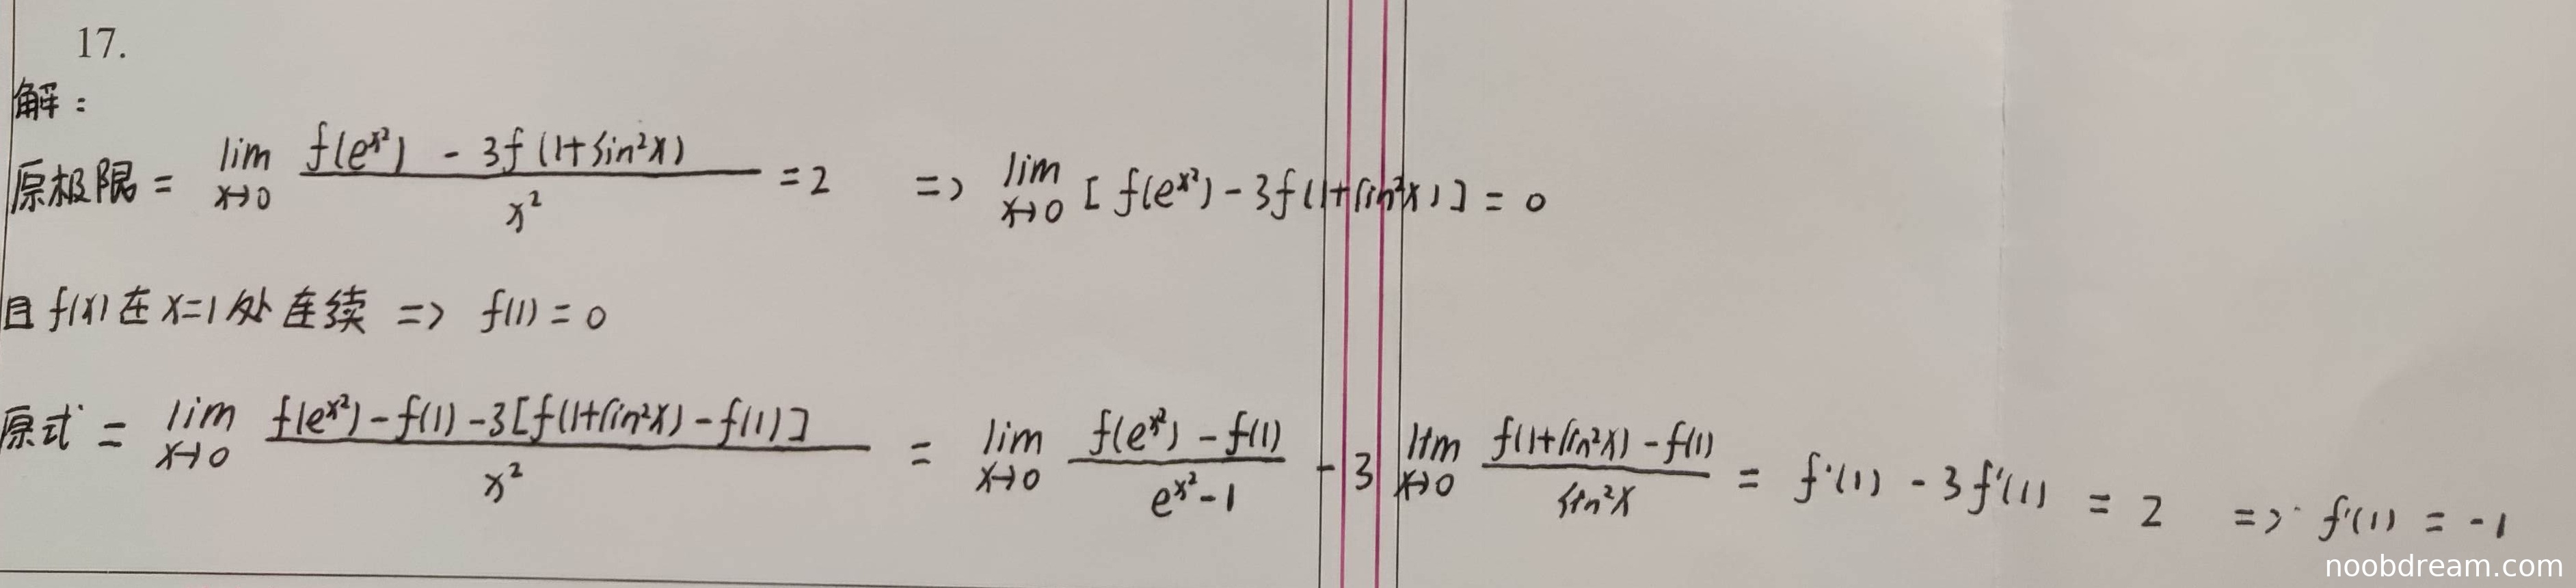 17.
解：
原极限 = lim x→0 (f(e^{x²}) - 3f(1+sin²x)) / x² = 2 => lim x→0 [f(e^{x²}) - 3f(1+sin²x)] = 0
且 f(x) 在 x=1 处连续 => f(1) = 0
原式 = lim x→0 (f(e^{x²}) - f(1) - 3[f(1+sin²x) - f(1)]) / x² = lim x→0 (f(e^{x²}) - f(1)) / (e^{x²} - 1) - 3 lim x→0 (f(1+sin²x) - f(1)) / sin²x = f'(1) - 3f'(1) = 2 => f'(1) = -1
noobdream.com